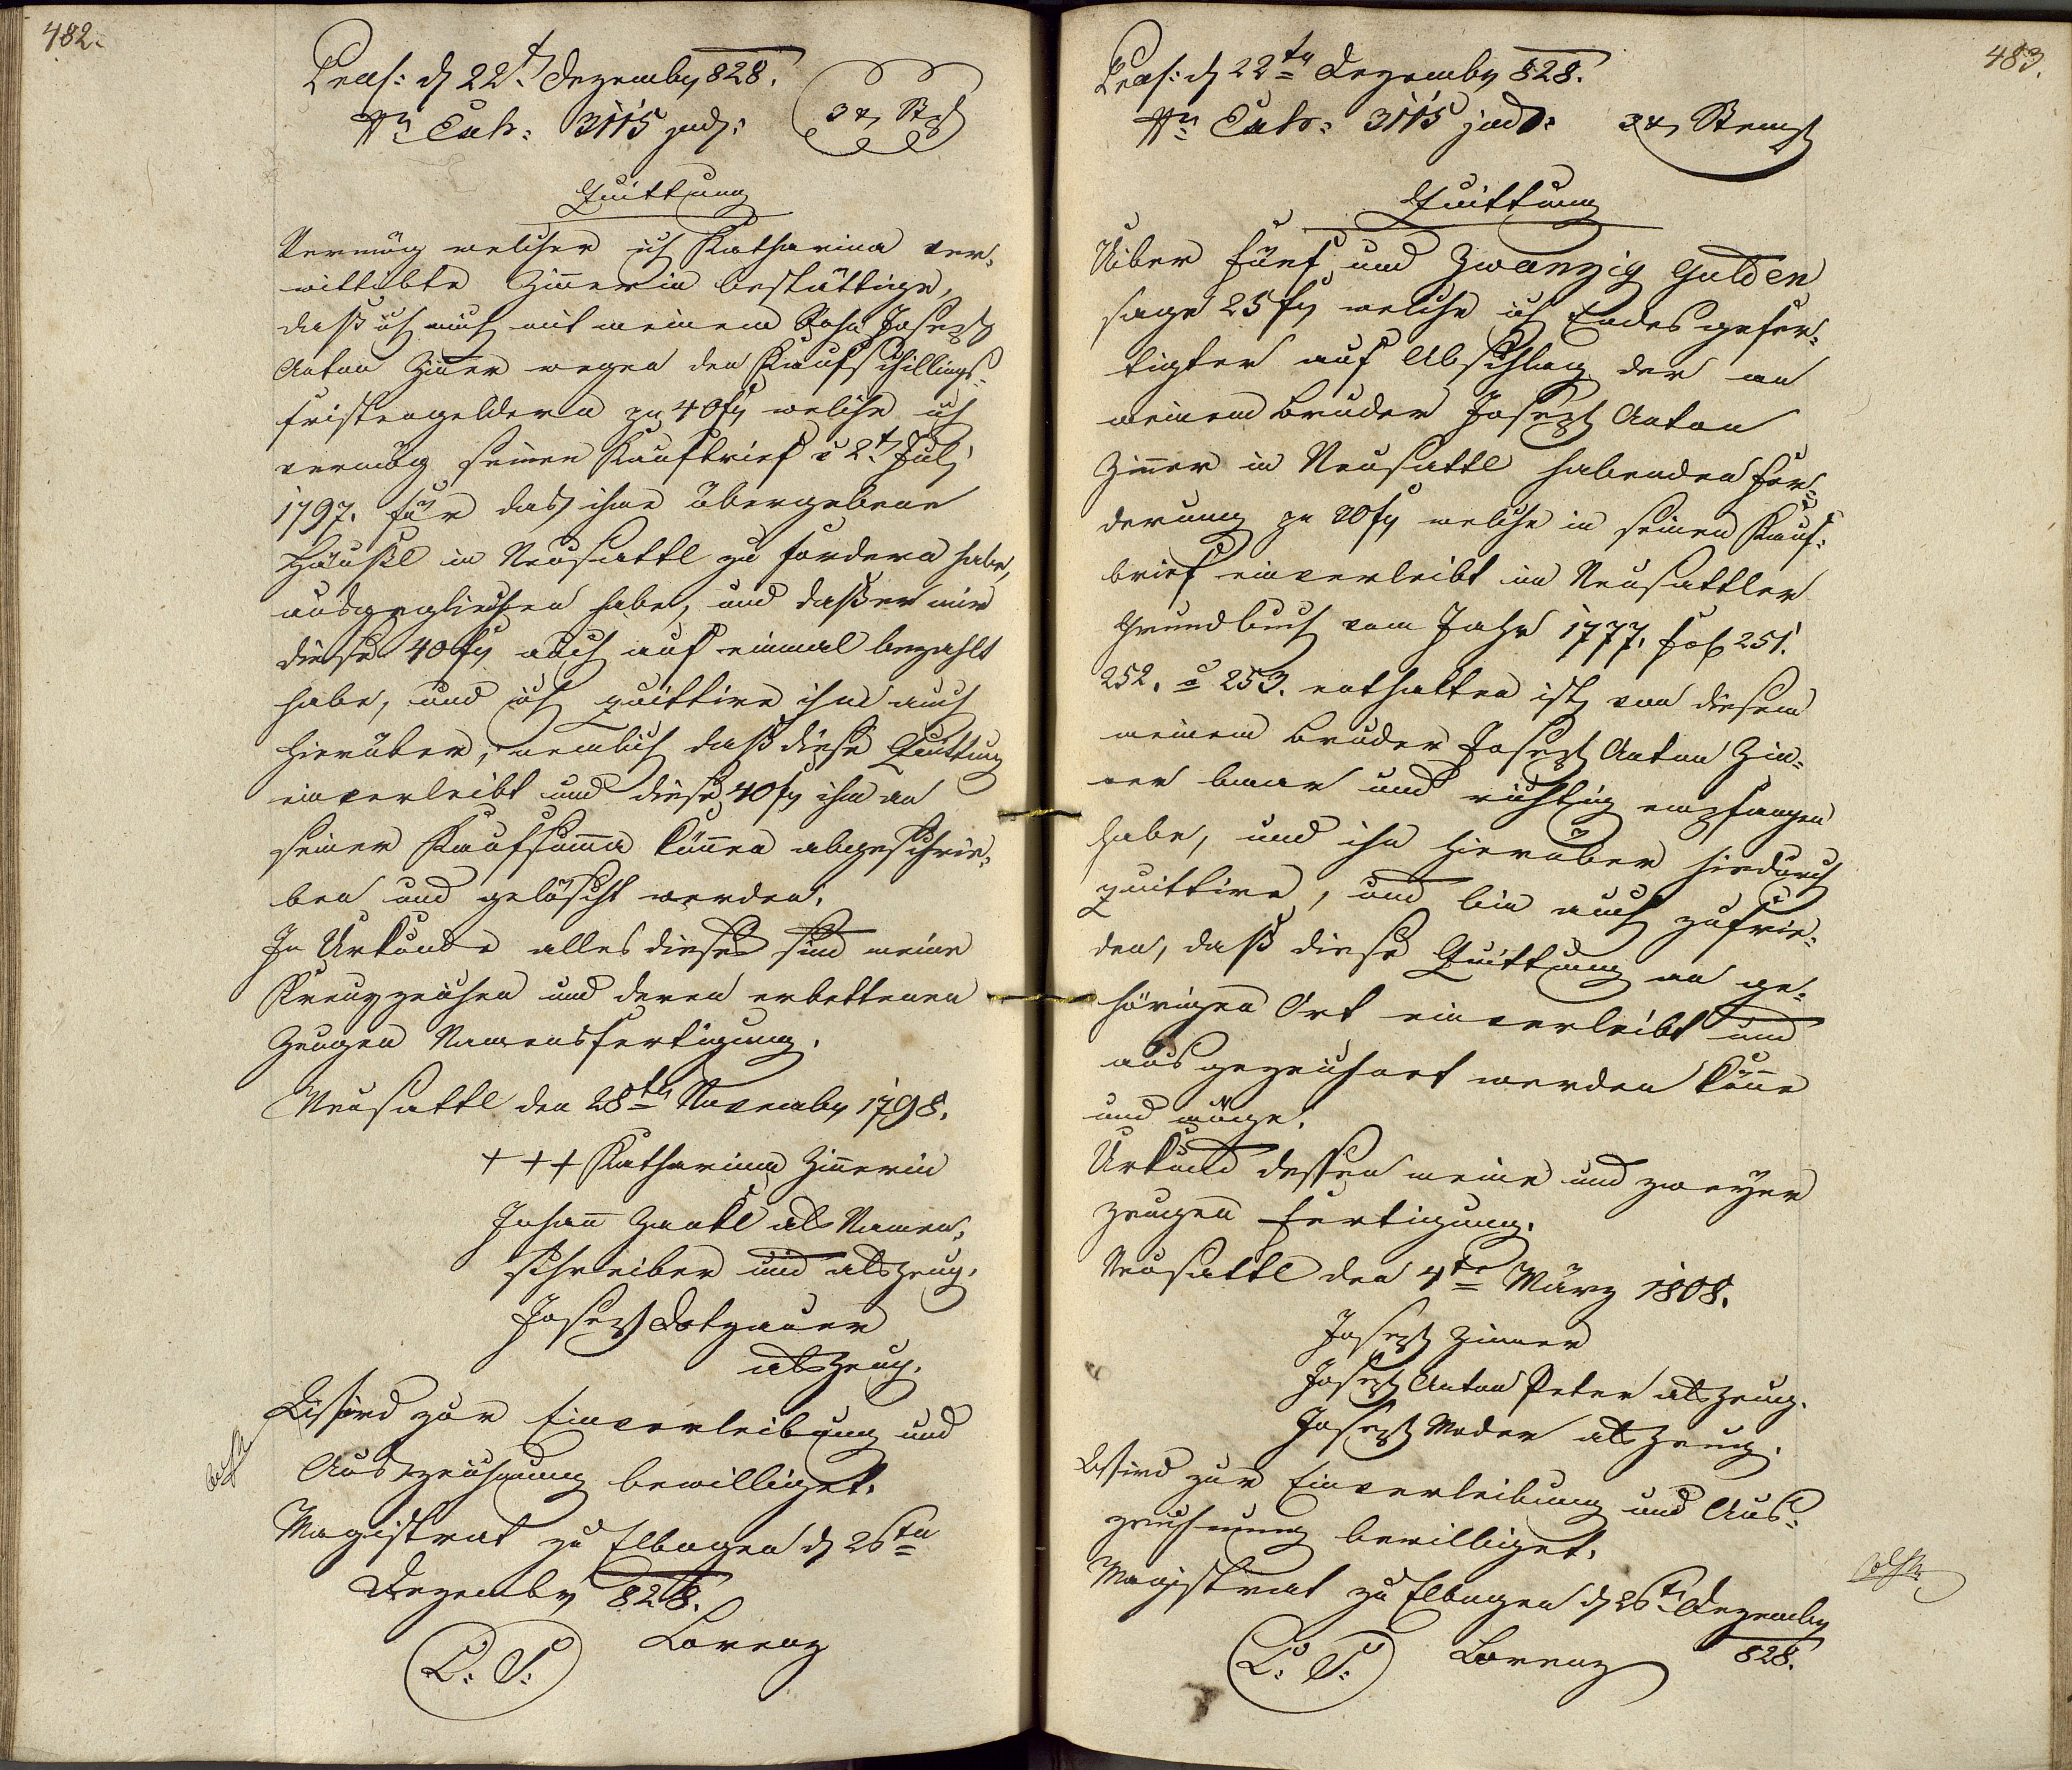 482.
Pras: d 22t Dezemb 828.
Nr Exh: 3115 jud:
3 x Stp
Quittung
Vermög welcher ich Katharina ver-
wittibte Zinnerin bestättige,
daß ich mich mit meinem Sohn Joseph
Anton Zinner wegen den Kaufschillings-
fristengeldern zu 40 f welche ich
vermög seinen Kaufbrief v 2t Juli
1797. für das ihme übergebene
Häusl in Neusattl zu fordern habe,
ausgeglichen habe, und daß er mir
diese 40 f auch auf einmal bezahlt
habe, und ich quittire ihn auch
hierüber, nemlich daß diese Quittung
einverleibt und diese 40 f ihm an
seiner Kaufsuma können abgeschrie-
ben und gelöscht werden.
In Urkunde alles dieses sind meine
Kreuzzeichen und deren erbettenen
Zeugen Namensfertigung.
Neusattl den 28ten Novemb 1798.
+++ Katharina Zinnerin
Johann Zankl als Namen-
schreiber und als Zeug.
Joseph Dotzauer
als Zeug.
Wird zur Einverleibung und
Auszeichnung bewilliget.
Magistrat zu Elbogen d 26ten
Dezemb 828.
L: S: Lorenz
483.
Pras: d 22ten Dezemb 828.
Nr Exh: 3115 jud: 3 x Stemp
Quittung
Uiber fünf und Zwanzig Gulden
sage 25 f welche ich Endesgefer-
tigter auf Abschlag der an
meinem Bruder Joseph Anton
Zinner in Neusattl habenden For-
derung zu 20 f welche in seinen Kauf-
brief einverleibt im Neusattler
Grundbuch vom Jahr 1777. fol 251.
252. & 253. enthalten ist, von diesem
meinem Bruder Joseph Anton Zin-
ner baar und richtig empfangen
habe, und ihn hierüber hiedurch
quittire, und bin auch zufrie-
den, daß diese Quittung an ge-
hörigen Ort einverleibt und
ausgezeichnet werden könne
und möge.
Urkund dessen meine und zweyer
Zeugen Fertigung.
Neusattl den 4te März 1808.
Joseph Zinner
Joseph Anton Peter als Zeug.
Joseph Moder als Zeug.
Wird zur Einverleibung und Aus-
zeichnung bewilliget.
Magistrat zu Elbogen d 26t Dezemb
828.
L: S: Lorenz